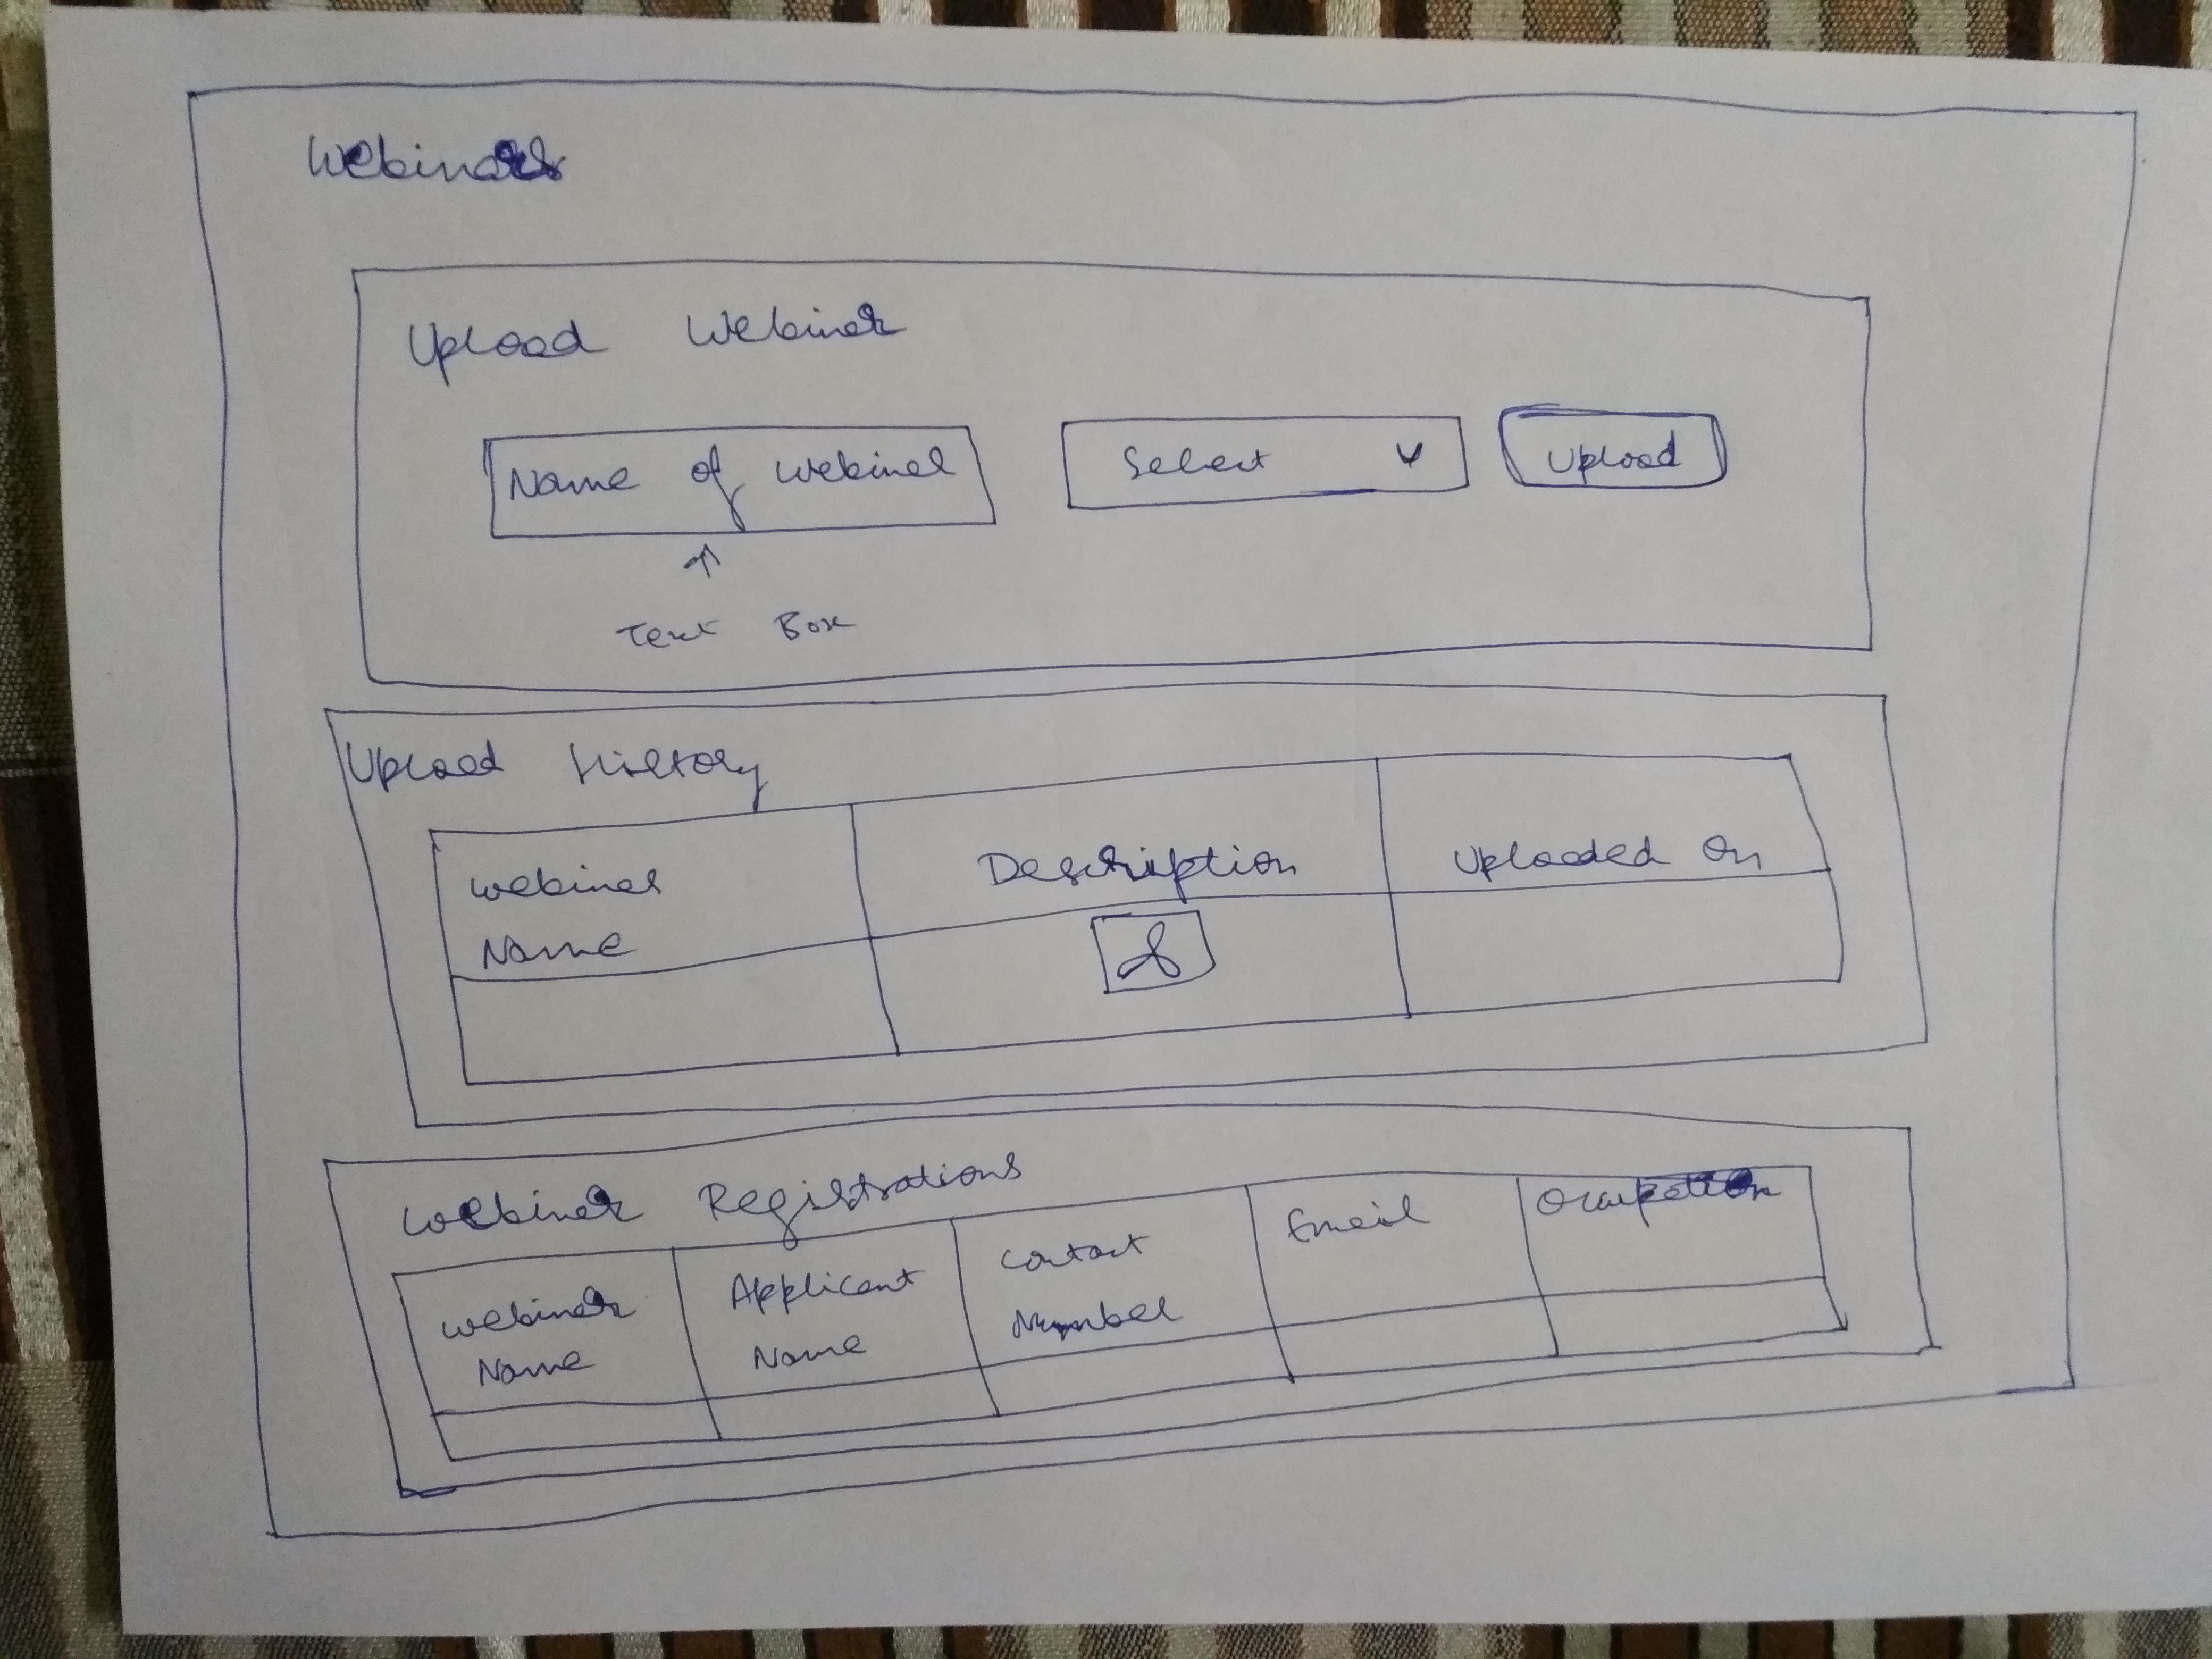 Webinars
Upload Webinar
Name of Webinar
Select
Upload
Text Box
Upload History
Webinar Name
Description
Uploaded On
Webinar Registrations
Webinar Name
Applicant Name
Contact Number
Email
Occupation